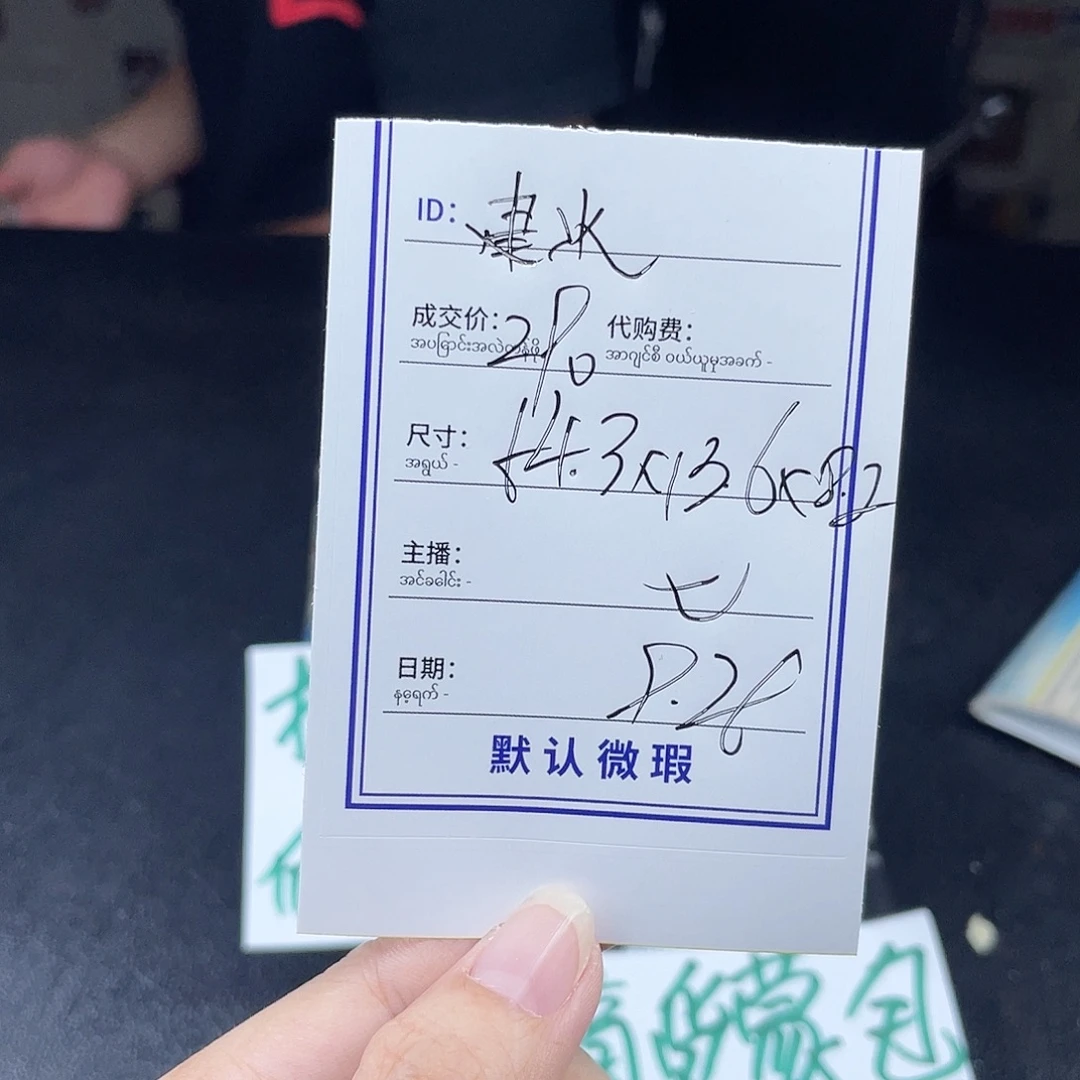 ID: 建水
成交价: 290 代购费:
အပြောင်းအလဲတန်ဖိုး အာဂျင်စီ ဝယ်ယူမှုအခက် -
尺寸: 14.3x13.6x8.2
အရွယ် -
主播: 七
အင်ခခေါင်း -
日期: 9.28
နေ့ရက် -
默认微瑕